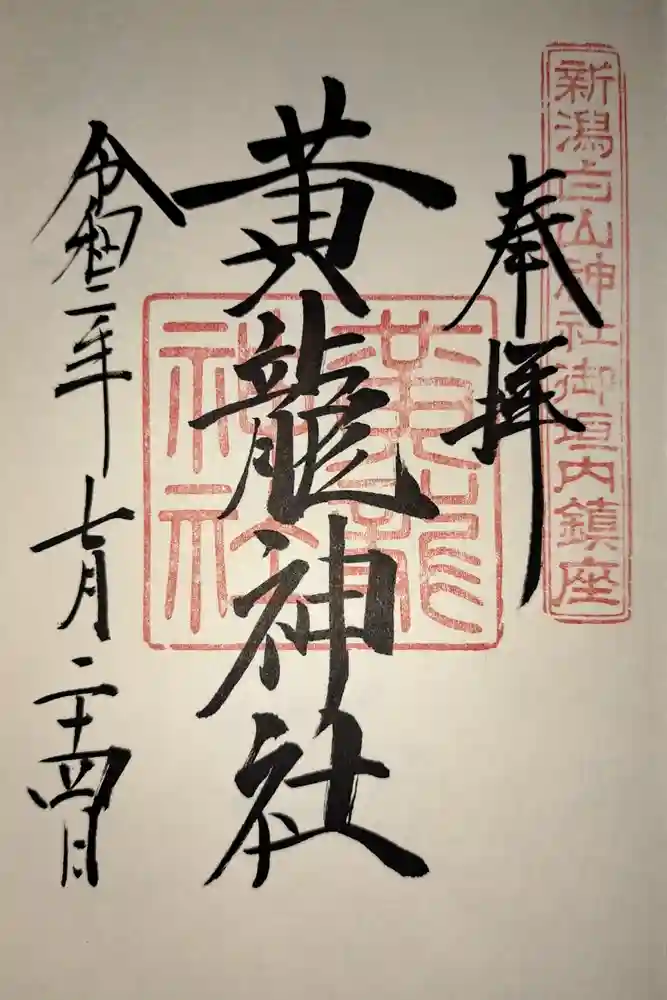 新潟白山神社御垣内鎮座
奉拝
黄龍神社
黄龍
神社
令和二年七月二十四日